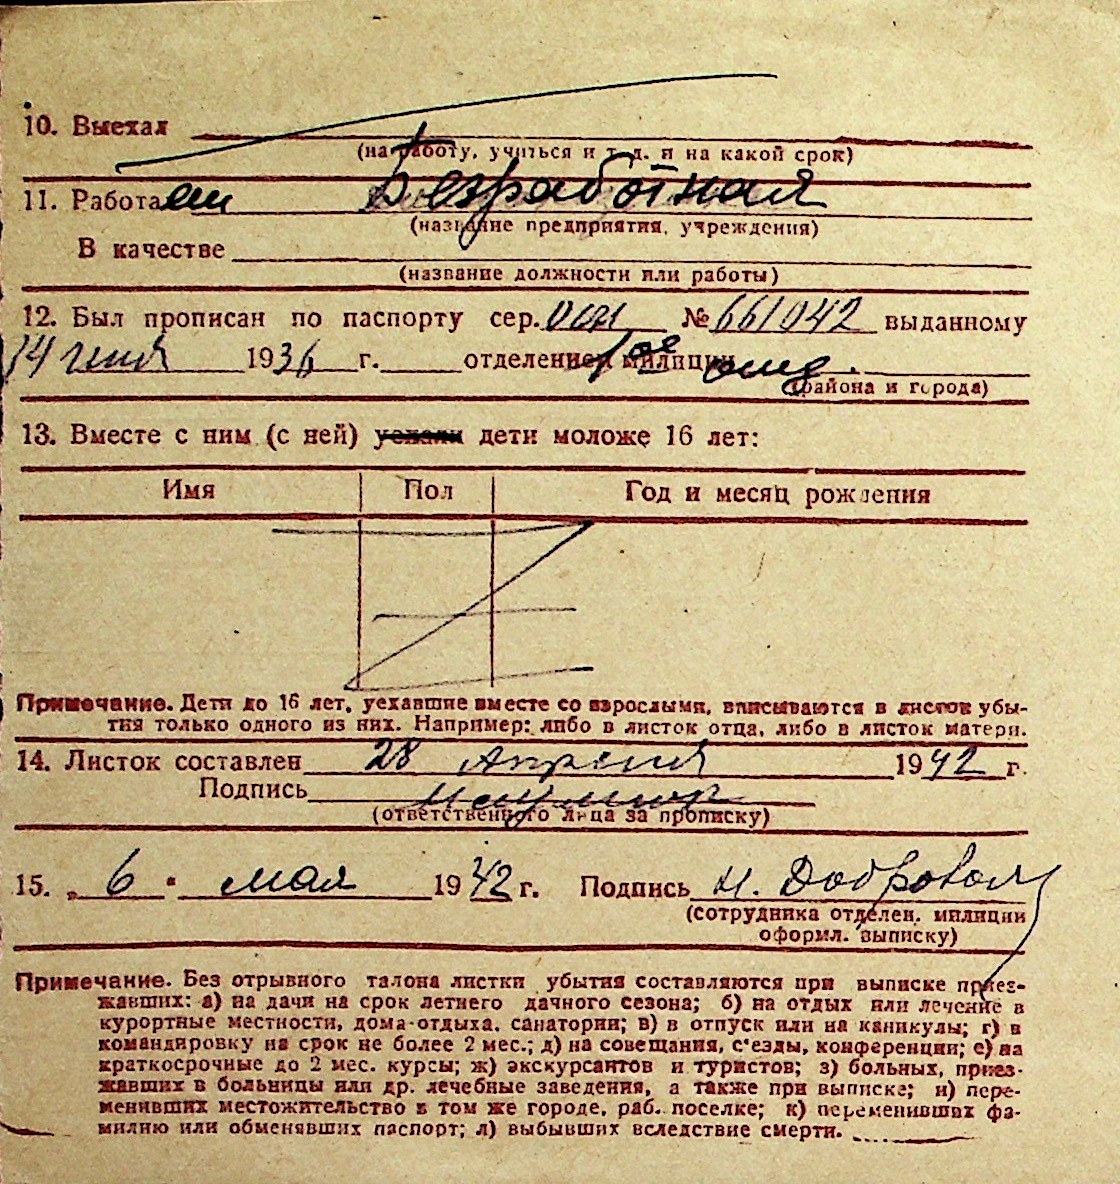 10. Выехал
(на работу, учиться и т. д. и на какой срок)
11. Работал Безработная
(название предприятия, учреждения)
В качестве
(название должности или работы)
12. Был прописан по паспорту сер. № 661042 выданному
14 1936 г. отделением милиции
(района и города)
13. Вместе с ним (с ней) уехали дети моложе 16 лет:
Имя Пол Год и месяц рождения
Примечание. Дети до 16 лет, уехавшие вместе со взрослыми, вписываются в листок убы-
тия только одного из них. Например: либо в листок отца, либо в листок матери.
14. Листок составлен 28 Апреля 1942 г.
Подпись
(ответственного лица за прописку)
15. „ 6 " мая 1942 г. Подпись Н. Добровол
(сотрудника отделен. милиции
оформл. выписку)
Примечание. Без отрывного талона листки убытия составляются при выписке приез-
жавших: а) на дачи на срок летнего дачного сезона; б) на отдых или лечение в
курортные местности, дома-отдыха, санатории; в) в отпуск или на каникулы; г) в
командировку на срок не более 2 мес.; д) на совещания, с'езды, конференции; е) на
краткосрочные до 2 мес. курсы; ж) экскурсантов и туристов; з) больных, приез-
жавших в больницы или др. лечебные заведения, а также при выписке; и) пере-
менивших местожительство в том же городе, раб. поселке; к) переменивших фа-
милию или обменявших паспорт; л) выбывших вследствие смерти.